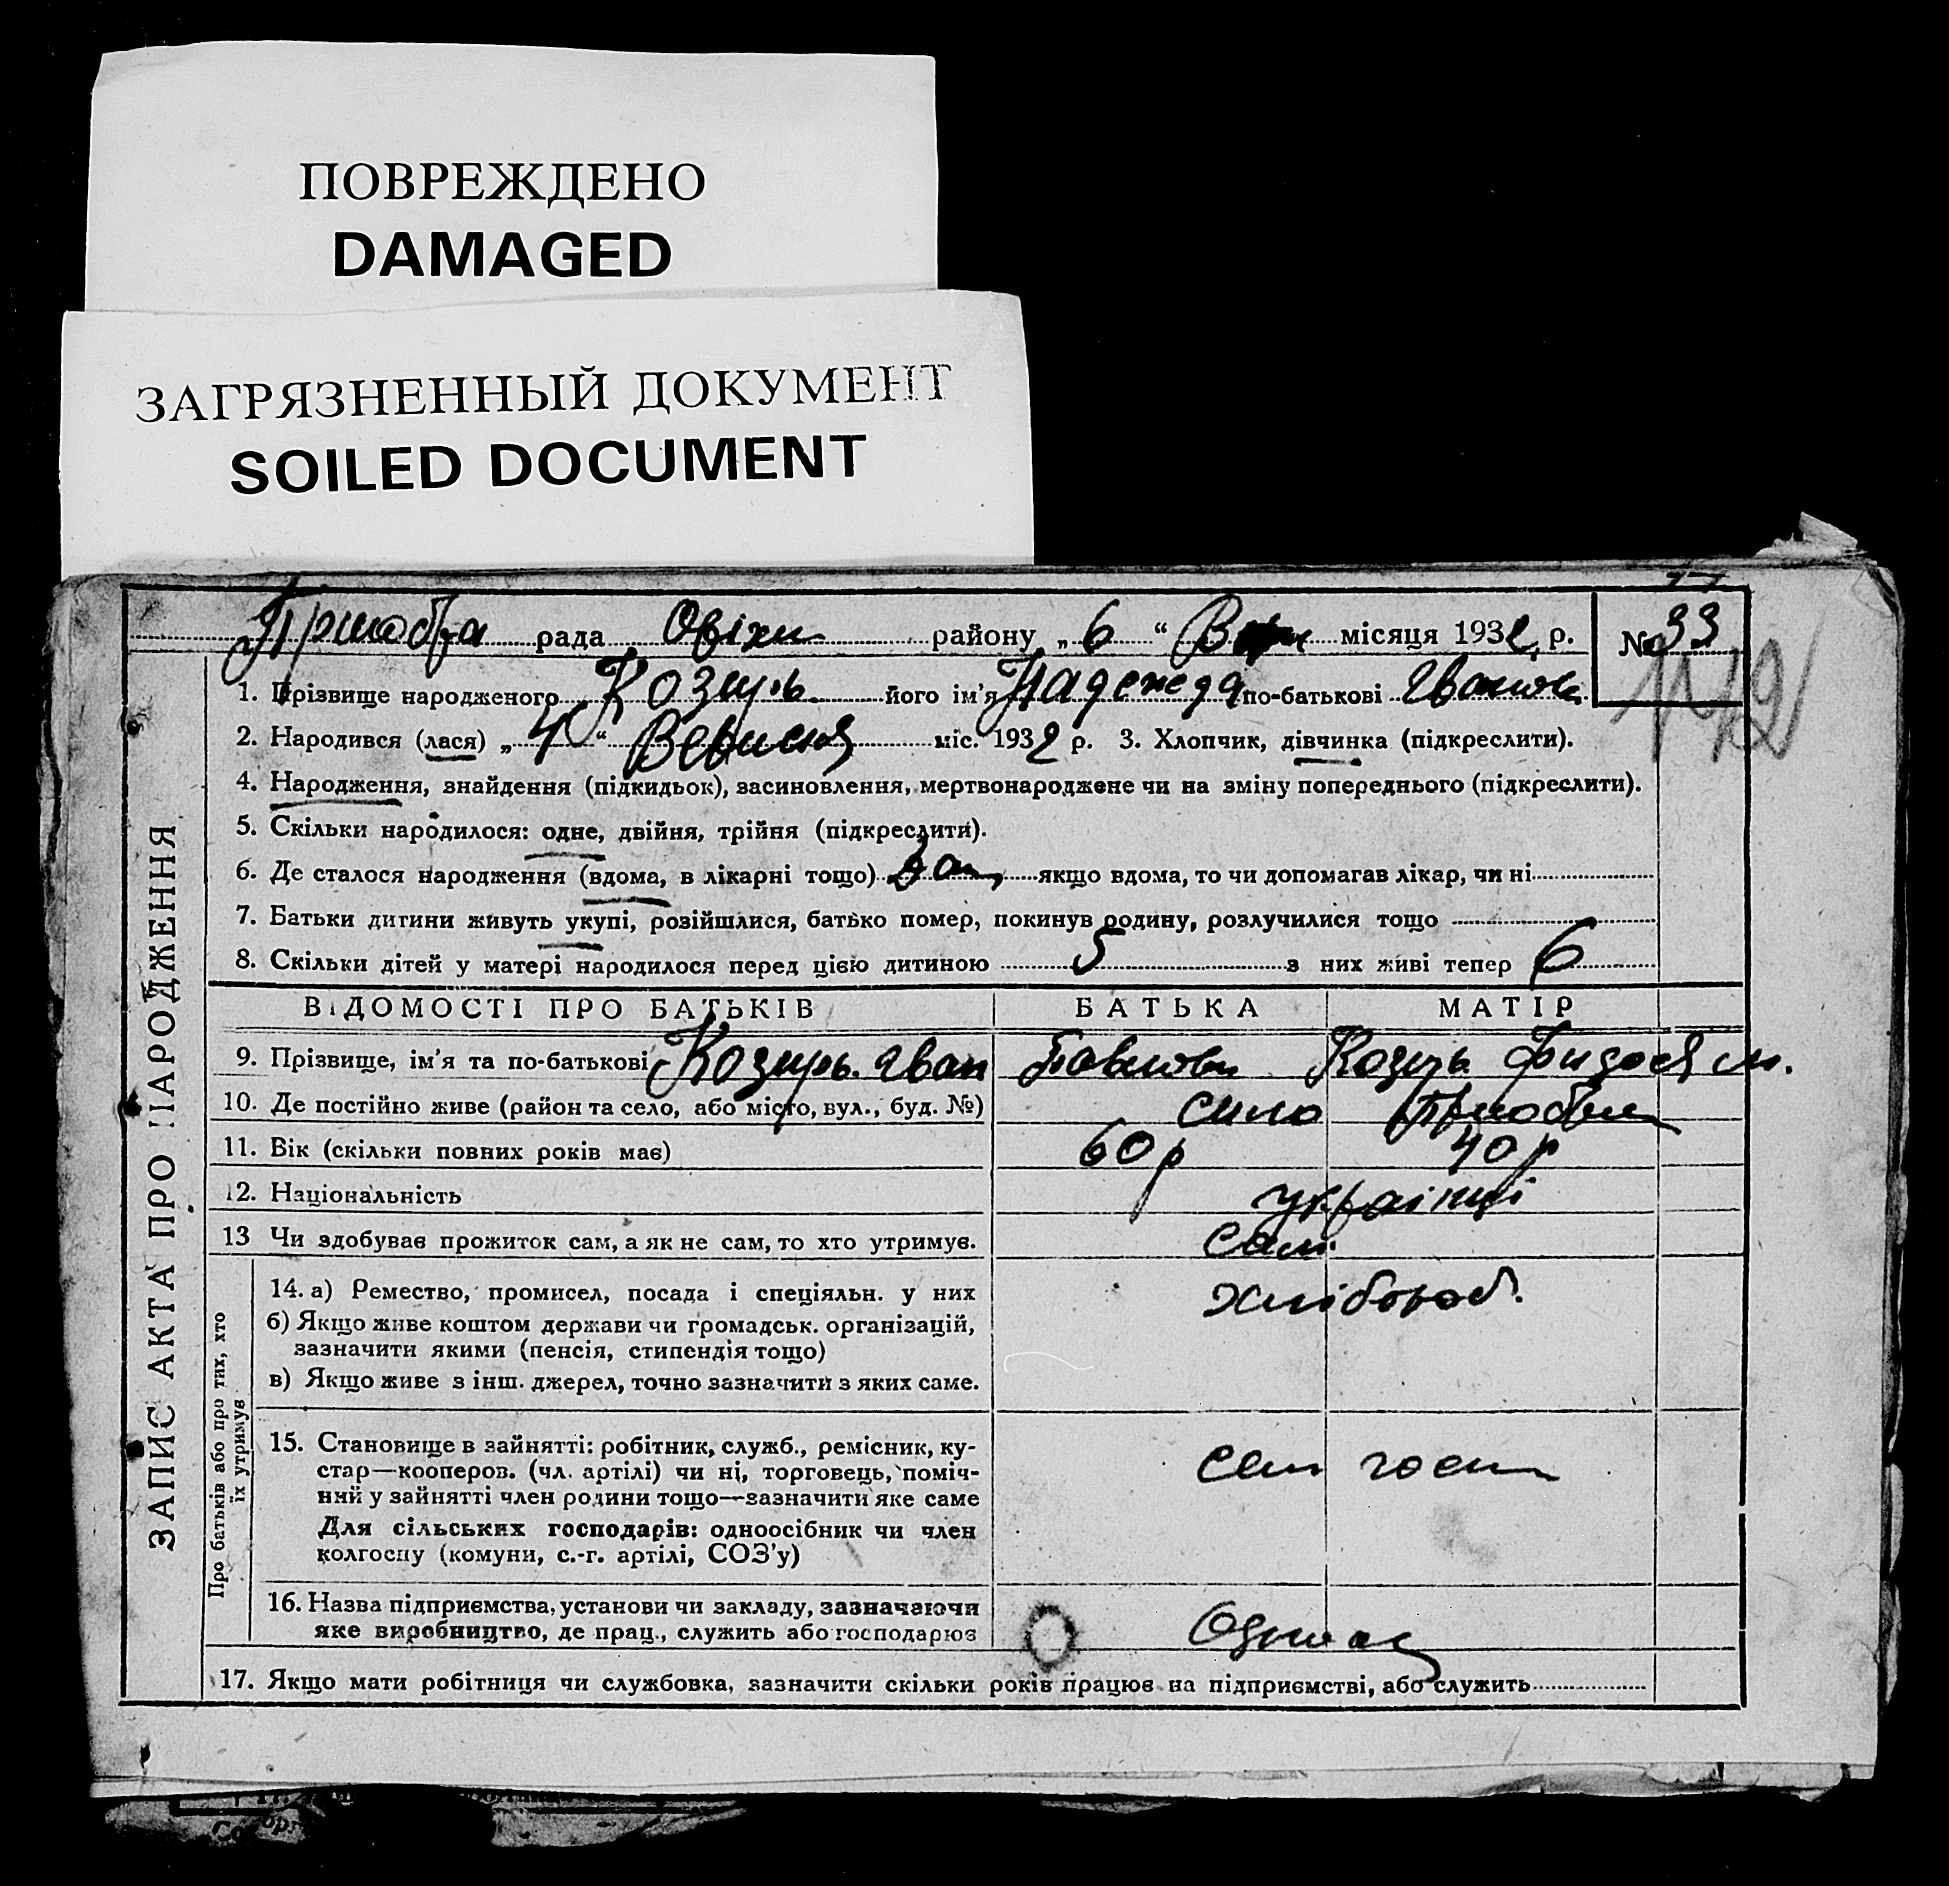 ПОВРЕЖДЕНО
DAMAGED
ЗАГРЯЗНЕННЫЙ ДОКУМЕНТ
SOILED DOCUMENT
рада района „ 6 “ місяця 1932 р. № 33
1. Прізвище народженого Козирь його ім'я Надежда по-батькові
2. Народився (лася) „ 4 “ міс. 1932 р. 3. Хлопчик, дівчинка (підкреслити).
4. Народження, знайдення (підкидьок), засиновлення, мертвонароджене чи на зміну попереднього (підкреслити).
5. Скільки народилося: одне, двійня, трійня (підкреслити).
6. Де сталося народження (вдома, в лікарні тощо) якщо вдома, то чи допомагав лікар, чи ні
7. Батьки дитини живуть укупі, розійшлися, батько помер, покинув родину, розлучилися тощо
8. Скільки дітей у матері народилося перед цією дитиною 5 з них живі тепер 6
ВІДОМОСТІ ПРО БАТЬКІВ БАТЬКА МАТІР
9. Прізвище, ім'я та по-батькові Козирь Іван Козирь м.
10. Де постійно живе (район та село, або місто, вул., буд. №) село
11. Вік (скільки повних років має) 60 р 40 р
12. Національність українці
13 Чи здобуває прожиток сам, а як не сам, то хто утримує. сам
14. а) Ремество, промисел, посада і спеціяльн. у них хлібороб.
б) Якщо живе коштом держави чи громадськ. організацій,
зазначити якими (пенсія, стипендія тощо)
в) Якщо живе з інш. джерел, точно зазначити з яких саме.
15. Становище в зайнятті: робітник, служб., ремісник, ку-
стар—кооперов. (чл. артілі) чи ні, торговець, поміч-
ний у зайнятті член родини тощо—зазначити яке саме
Для сільських господарів: одноосібник чи член
колгоспу (комуни, с.-г. артілі, СОЗ'у)
16. Назва підприємства, установи чи закладу, зазначаючи
яке виробництво, де прац., служить або господарює
17. Якщо мати робітниця чи службовка, зазначити скільки років працює на підприємстві, або служить
ЗАПИС АКТА ПРО НАРОДЖЕННЯ
Про батьків або про тих, хто
їх утримує